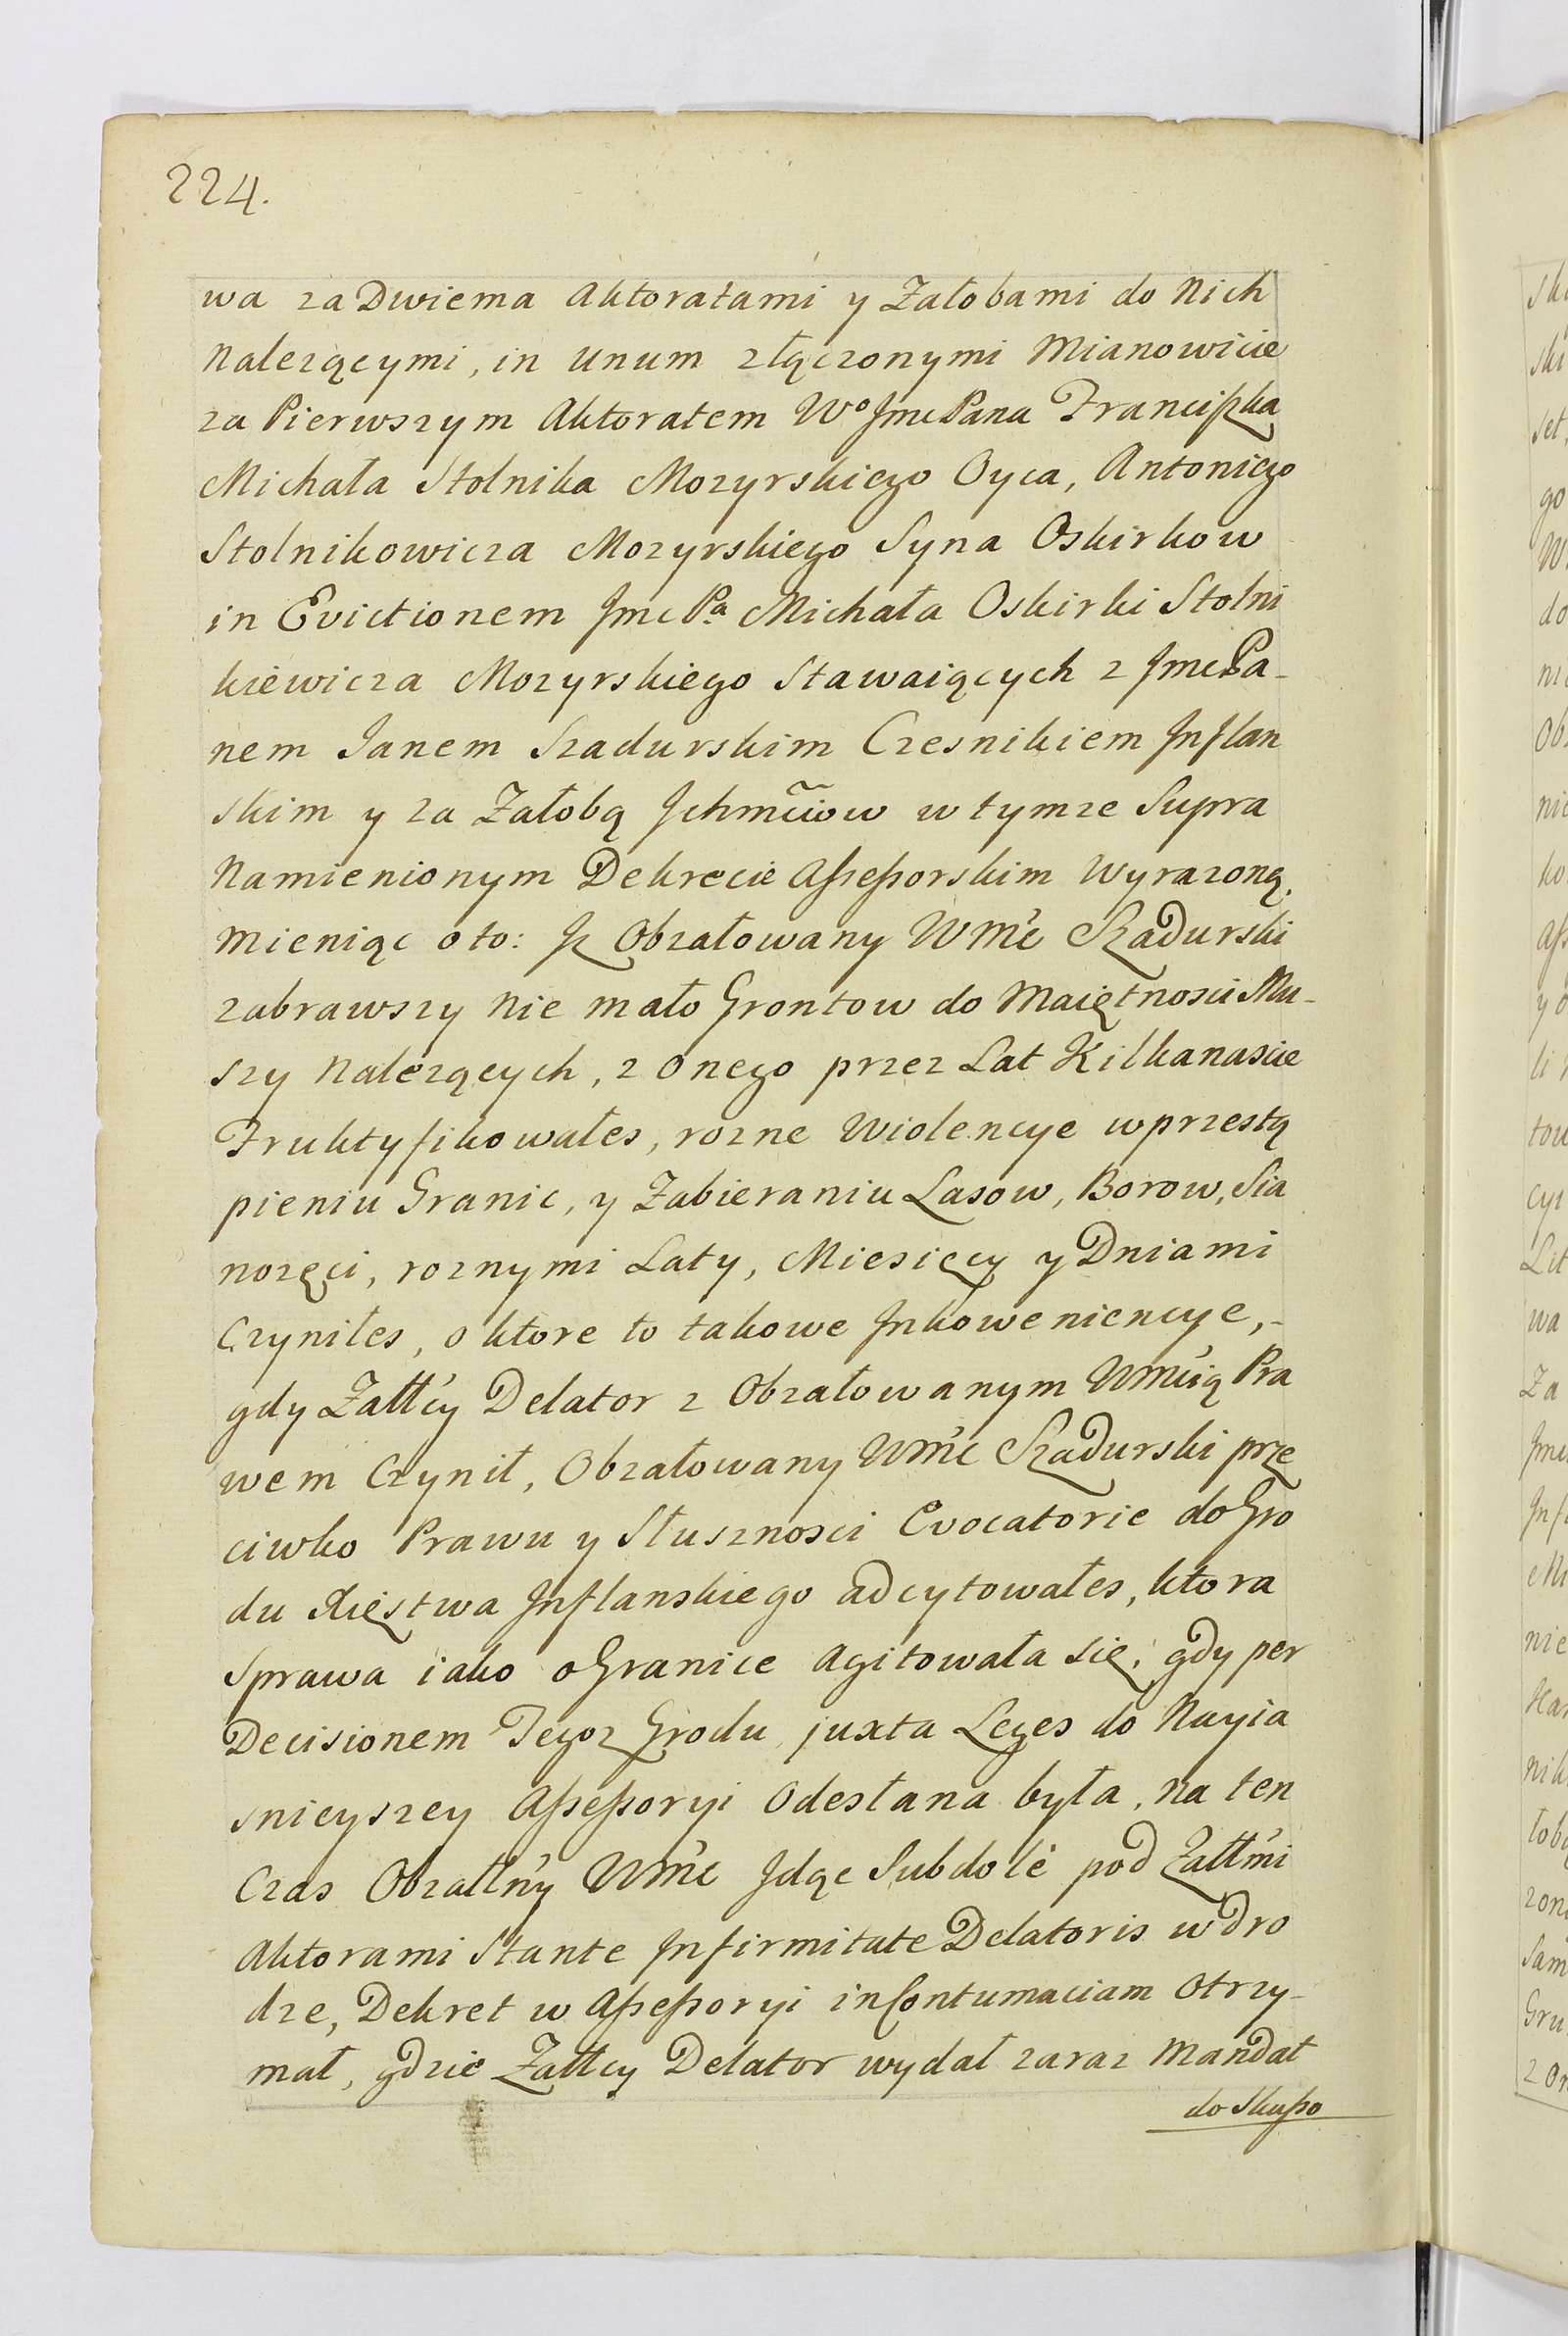 224.
wa za Dwiema Aktoratami y Załobami do Nich
Nalezącymi, in Unum złączonymi Mianowicie
za Pierwszym Aktoratem Wo Jmc Pana Franciszka
Michała Stolnika Mozyrskiego Oyca, Antoniego
Stolnikowicza Mozyrskiego Syna Oskirkow
in Evictionem Jmc Pa Michała Oskirki Stolni
kiewicza Mozyrskiego Stawaiących z Jmc Pa-
nem Janem Szadurskim Czesnikiem Inflan
skim y za Załobą Ichmciow w tymze Supra
Namienionym Dekrecie Assessorskim Wyrazoną,
Mieniąc o to: Iz Obzałowany Wmc Szadurski
zabrawszy Nie mało Grontow do Maiętnosci Mu-
szy Nalezących, z Onego przez Lat Kilkanascie
Fruktyfikowałes, rozne Wiolencye w przestą
pieniu Granic, y Zabieraniu Lasow, Borow, Sia
nozęci, roznymi Laty, Miesięcy y Dniami
Czyniłes, o ktore to takowe Inkoweniencye,-
gdy Załłcy Delator z Obzałowanym Wmcią Pra
wem Czynił, Obzałowany Wmc Szadurski prze
ciwko Prawu y Słusznosci Evocatorie do Gro
du Xięstwa Inflanskiego adcytowałes, ktora
Sprawa iako o Granice Agitowała się, gdy per
Decisionem Tegoz Grodu juxta Leges do Nayia
snieyszey Assessoryi Odesłana była, na ten
Czas Obzałłny Wmc Idąc Subdole pod Załłmi
Aktorami Stante Infirmitate Delatoris w Dro
dze, Dekret w Assessoryi in Contumaciam Otrzy-
mał, gdzie Załłcy Delator wydał zaraz Mandat
do Skasso